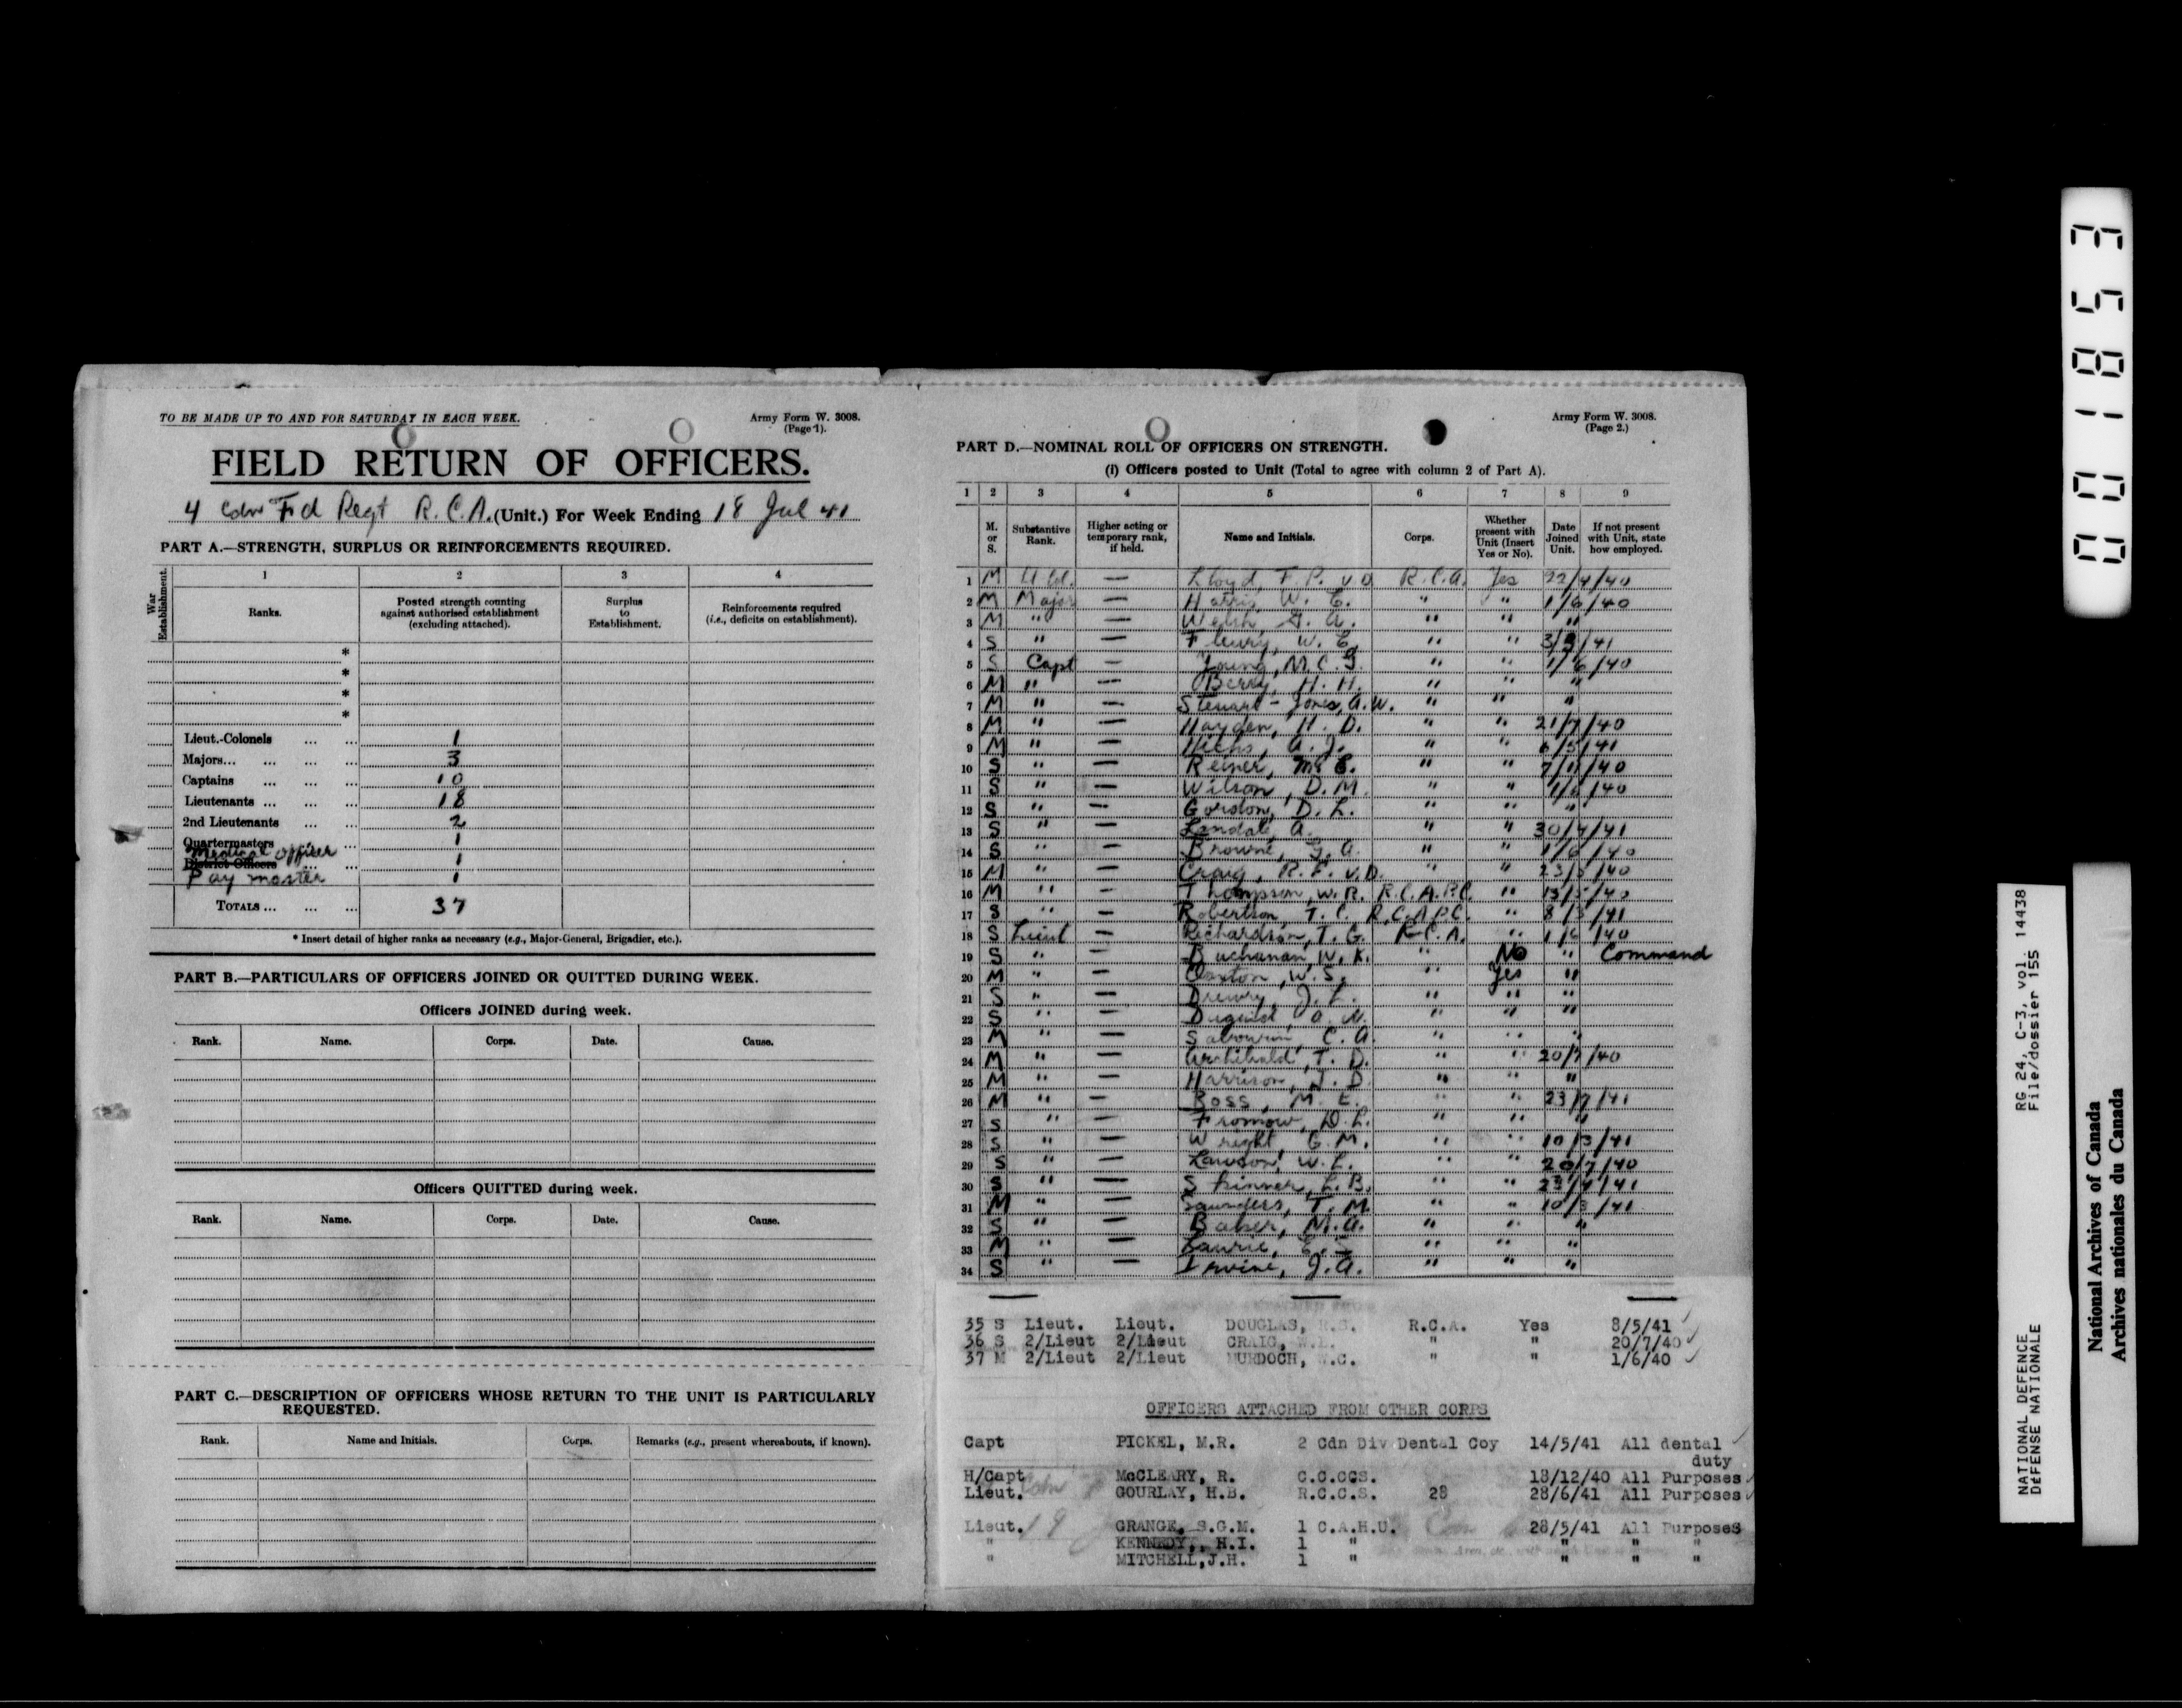 TO BE MADE UP TO AND FOR SATURDAY IN EACH WEEK.
Army Form W. 3008.
(Page 1).
FIELD RETURN OF OFFICERS.
4 Cdn Fd Regt R.C.A. (Unit.) For Week Ending 18 Jul 41
PART A.—STRENGTH, SURPLUS OR REINFORCEMENTS REQUIRED.
War Establishment.
1 2 3 4
Ranks. Posted strength counting against authorised establishment (excluding attached). Surplus to Establishment. Reinforcements required (i.e., deficits on establishment).
*
*
*
*
Lieut.-Colonels ... ... 1
Majors... ... ... ... 3
Captains ... ... ... 10
Lieutenants ... ... ... 18
2nd Lieutenants ... ... 2
Quartermasters ... 1
Medical officer
District Officers ... ... 1
Pay master 1
TOTALS ... ... ... 37
* Insert detail of higher ranks as necessary (e.g., Major-General, Brigadier, etc.).
PART B.—PARTICULARS OF OFFICERS JOINED OR QUITTED DURING WEEK.
Officers JOINED during week.
Rank. Name. Corps. Date. Cause.
Officers QUITTED during week.
Rank. Name. Corps. Date. Cause.
PART C.—DESCRIPTION OF OFFICERS WHOSE RETURN TO THE UNIT IS PARTICULARLY
REQUESTED.
Rank. Name and Initials. Corps. Remarks (e.g., present whereabouts, if known).
Army Form W. 3008.
(Page 2.)
PART D.—NOMINAL ROLL OF OFFICERS ON STRENGTH.
(i) Officers posted to Unit (Total to agree with column 2 of Part A).
1 2 3 4 5 6 7 8 9
M. or S. Substantive Rank. Higher acting or temporary rank, if held. Name and Initials. Corps. Whether present with Unit (Insert Yes or No). Date Joined Unit. If not present with Unit, state how employed.
1 M — Lloyd, F. P. v.d R.C.A. Yes 22/4/40
2 M Major — Harris, W. E. " " 1/6/40
3 M " — Welsh, G. A. " " "
4 S " — Fleury, W. E. " " 3/3/41
5 S Capt — Young, M. C. G. " " 1/6/40
6 M " — Berry, H. H. " " "
7 M " — Stewart-Jones, A.W. " " "
8 M " — Hayden, H. D. " " 21/7/40
9 M " — Hicks, A. J. " " 6/5/41
10 S " — Reiner, M. " " 7/11/40
11 S " — Wilson, D. M. " " 1/6/40
12 S " — Gordon, D. L. " " "
13 S " — Landale, A. " " 30/4/41
14 S " — Browne, G. A. " " 1/6/40
15 M " — Craig, R. F. V.D. " " 23/5/40
16 M " — Thompson, W. R. " 13/5/40
17 S " — Robertson, T. C. R.C.A.P.C. " 8/5/41
18 S Lieut — Richardson, T. G. R.C.A. " 1/6/40
19 S " — Buchanan, W. K. " No " Command
20 M " — Claxton, W. S. " Yes "
21 S " — Drewry, J. L. " " "
22 S " — Duguid, A. N. " " "
23 M " — Sabourin, C. A. " " "
24 M " — Archibald, T. D. " " 20/7/40
25 M " — Harrison, J. D. " " "
26 M " — Ross, M. E. " " 23/7/41
27 S " — Fromow, D. L. " " "
28 S " — Wright, G. M. " " 10/3/41
29 S " — Lawson, W. L. " " 20/7/40
30 S " — Skinner, L. B. " " 23/4/41
31 M " — Saunders, T. M. " " 10/3/41
32 S " — Baker, M. A. " " "
33 M " — Laurie, " " "
34 S " — Irvine, J. A. " " "
35 S Lieut. Lieut. DOUGLAS, R.S. R.C.A. Yes 8/5/41
36 S 2/Lieut 2/Lieut CRAIG, W.L. " " 20/7/40
37 M 2/Lieut 2/Lieut MURDOCH, W.C. " " 1/6/40
OFFICERS ATTACHED FROM OTHER CORPS
Capt PICKEL, M.R. 2 Cdn Div Dental Coy 14/5/41 All dental
duty
H/Capt McCLEARY, R. C.C.CCS. 18/12/40 All Purposes
Lieut. GOURLAY, H.B. R.C.C.S. 28 28/6/41 All Purposes
Lieut. GRANGE, S.G.M. 1 C.A.H.U. 28/5/41 All Purposes
" KENNEDY, H.I. 1 " " " "
" MITCHELL, J.H. 1 " " " "
001853
NATIONAL DEFENCE RG 24, C-3, vol. 14438
DÉFENSE NATIONALE File/dossier 155
National Archives of Canada
Archives nationales du Canada